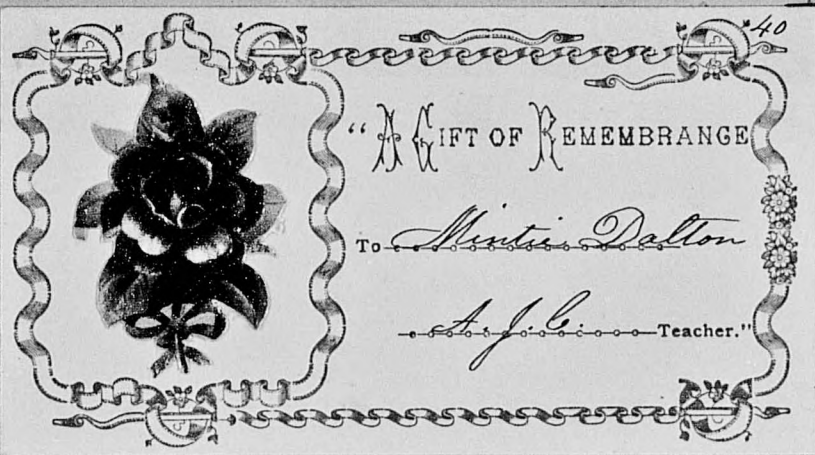 40
"A GIFT OF REMEMBRANCE
To Mintie Dalton
A. J. C. Teacher."